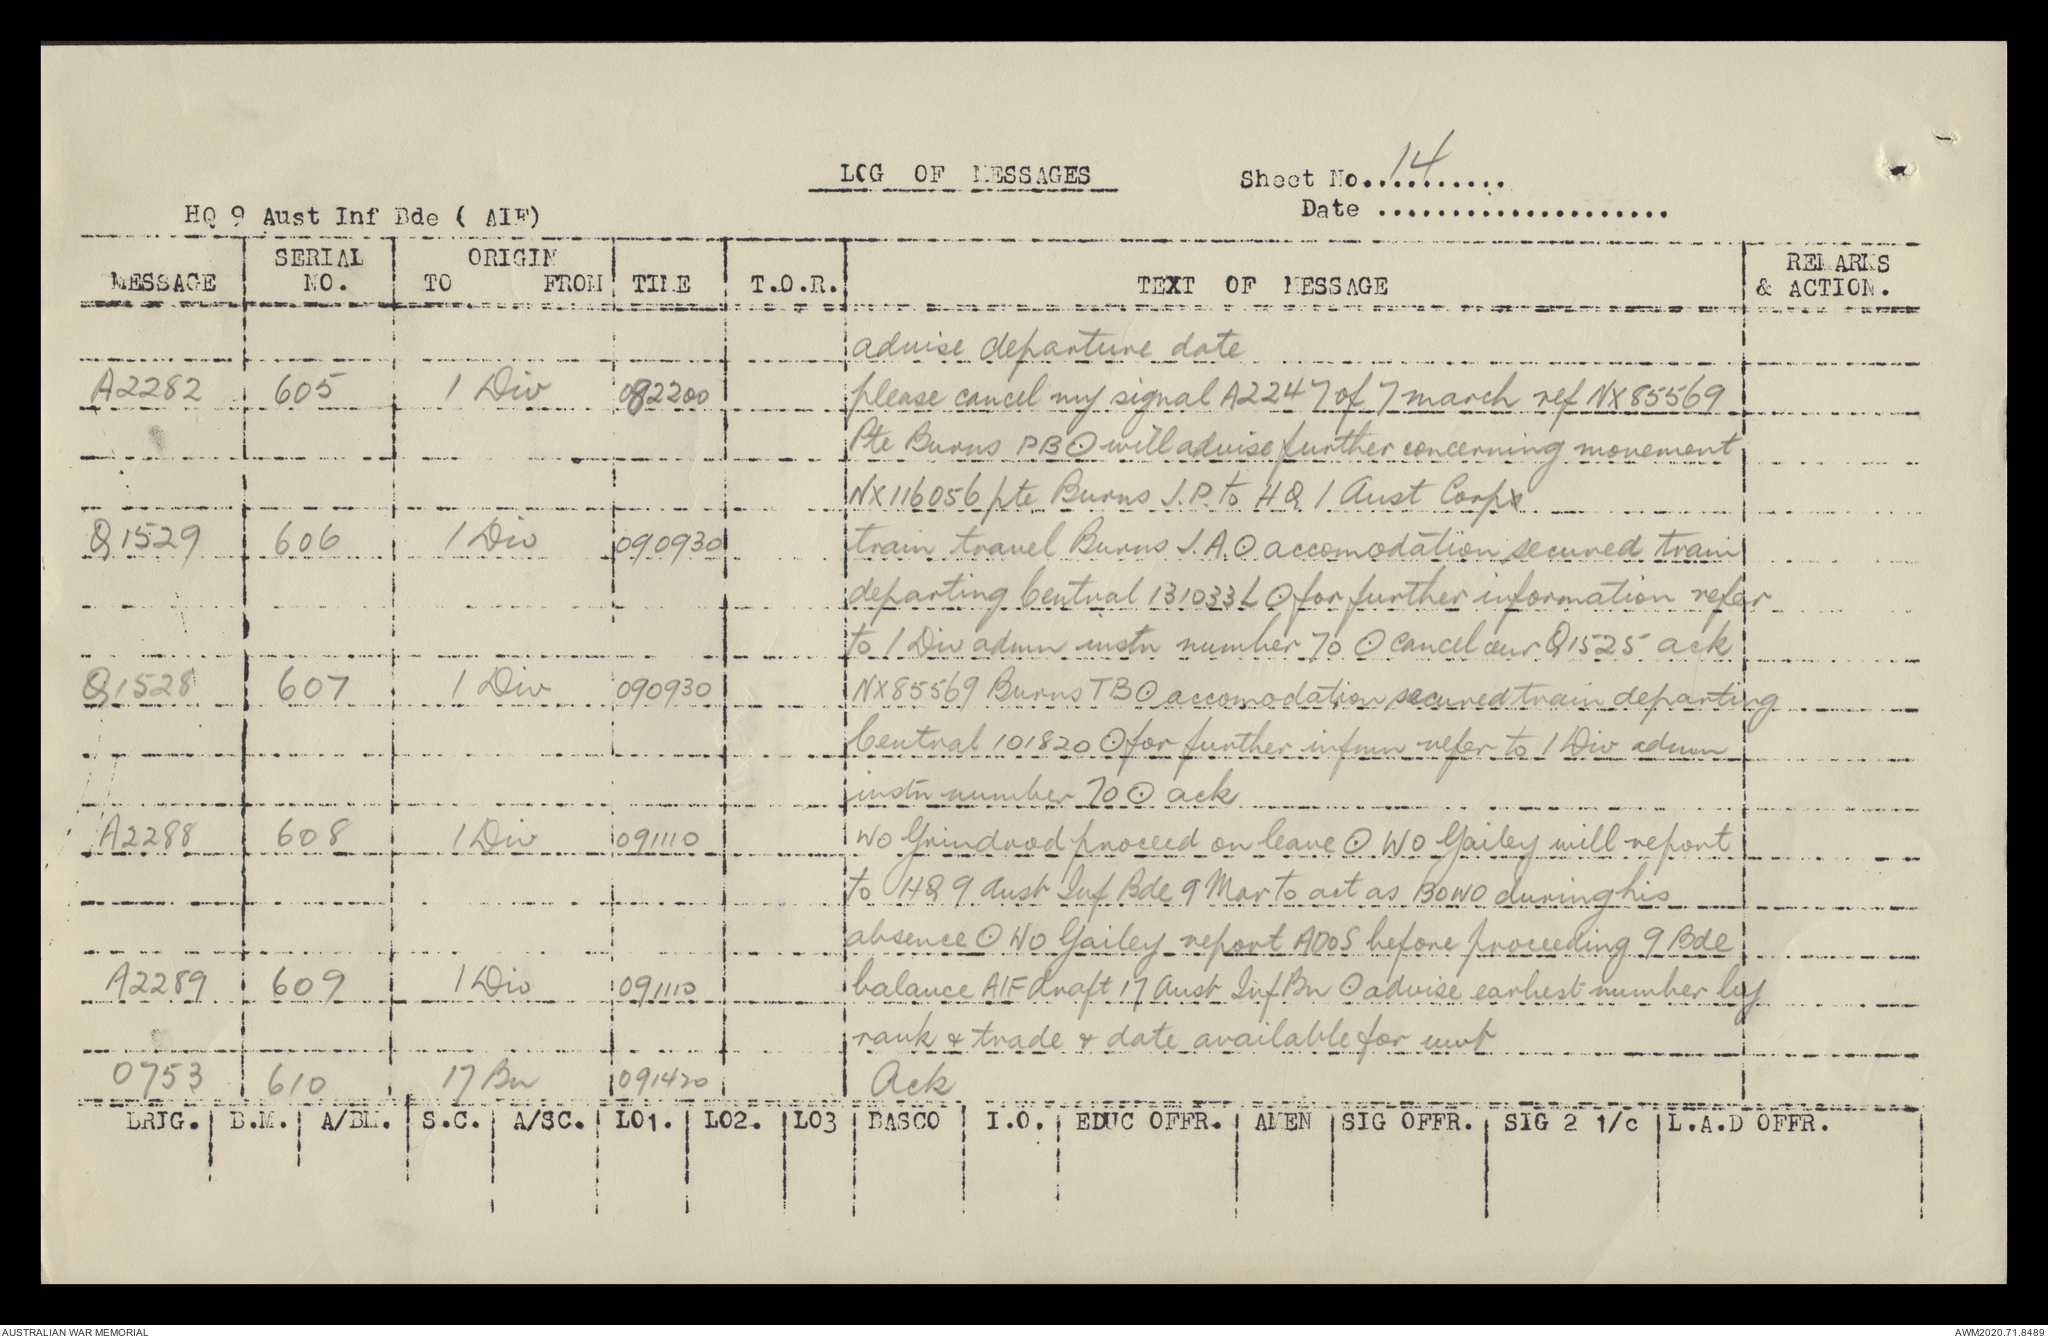 LOG OF MESSAGES
Sheet No. 14
Date
HQ 9 Aust Inf Bde ( AIF)
MESSAGE SERIAL NO. ORIGIN TO FROM TIME T.O.R. TEXT OF MESSAGE REMARKS & ACTION.
advise departure date
A2282 605 1 Div 082200 please cancel my signal A2247 of 7 march ref NX85569
Pte Burns PB ⊙ will advise further concerning movement
NX116056 pte Burns J.P. to HQ 1 Aust Corps
Q1529 606 1 Div 090930 train travel Burns J.A. ⊙ accomodation secured train
departing Central 131033L ⊙ for further information refer
to 1 Div admn instn number 70 ⊙ cancel our Q1525 ack
Q1528 607 1 Div 090930 NX85569 Burns TB ⊙ accomodation secured train departing
Central 101820 ⊙ for further infmn refer to 1 Div admn
instn number 70 ⊙ ack
A2288 608 1 Div 091110 WO Grindrod proceed on leave ⊙ WO Gailey will report
to HQ 9 Aust Inf Bde 9 Mar to act as BOWO during his
absence ⊙ WO Gailey report ADOS before proceeding 9 Bde
A2289 609 1 Div 091110 balance AIF draft 17 Aust Inf Bn ⊙ advise earliest number by
rank & trade & date available for mvt
0753 610 17 Bn 091420 Ack
BRIG. B.M. A/BM. S.C. A/SC. LO1. LO2. LO3 BASCO I.O. EDUC OFFR. AMEN SIG OFFR. SIG 2 1/c L.A.D OFFR.
AUSTRALIAN WAR MEMORIAL
AWM2020.71.8489